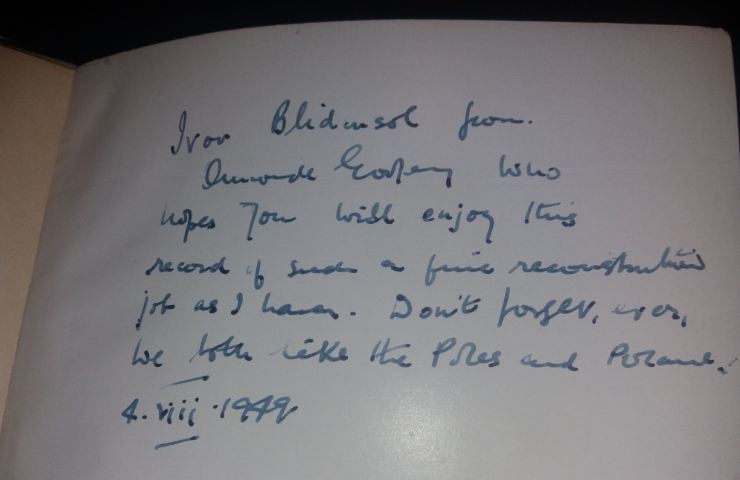 Ivor Blidmsol from.
Ormonde Godfrey who
hopes you will enjoy this
record of such a fine reconstruction
job as I have. Don't forget, ever,
we both like the Poles and Poland.
4.viii.1949